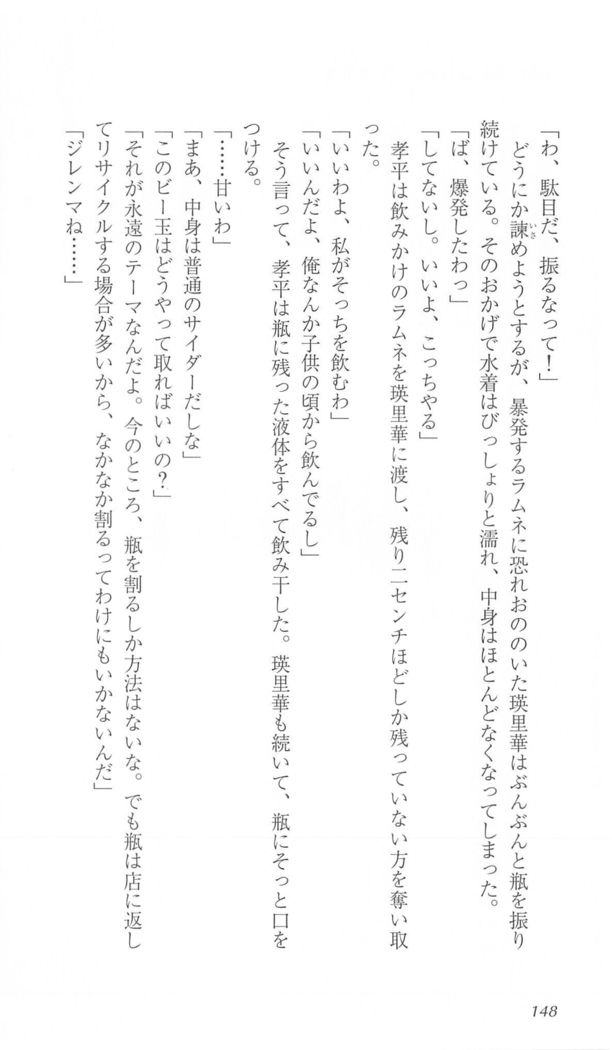 「わ、駄目だ、振るなって！」
　どうにか諫めようとするが、暴発するラムネに恐れおののいた瑛里華はぶんぶんと瓶を振り
続けている。そのおかげで水着はびっしょりと濡れ、中身はほとんどなくなってしまった。
「ば、爆発したわっ」
「してないし。いいよ、こっちやる」
　孝平は飲みかけのラムネを瑛里華に渡し、残り二センチほどしか残っていない方を奪い取
った。
「いいわよ、私がそっちを飲むわ」
「いいんだよ、俺なんか子供の頃から飲んでるし」
　そう言って、孝平は瓶に残った液体をすべて飲み干した。瑛里華も続いて、瓶にそっと口を
つける。
「……甘いわ」
「まあ、中身は普通のサイダーだしな」
「このビー玉はどうやって取ればいいの？」
「それが永遠のテーマなんだよ。今のところ、瓶を割るしか方法はないな。でも瓶は店に返し
てリサイクルする場合が多いから、なかなか割るってわけにもいかないんだ」
「ジレンマね……」
いさ
148